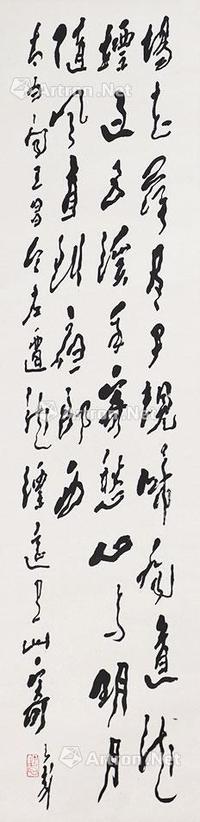 楊花落尽子規啼聞道龙
標過五溪我寄愁心与明月
隨風直到夜郎西
白聞王昌令左遷龙標遥有此寄
Artron.Net